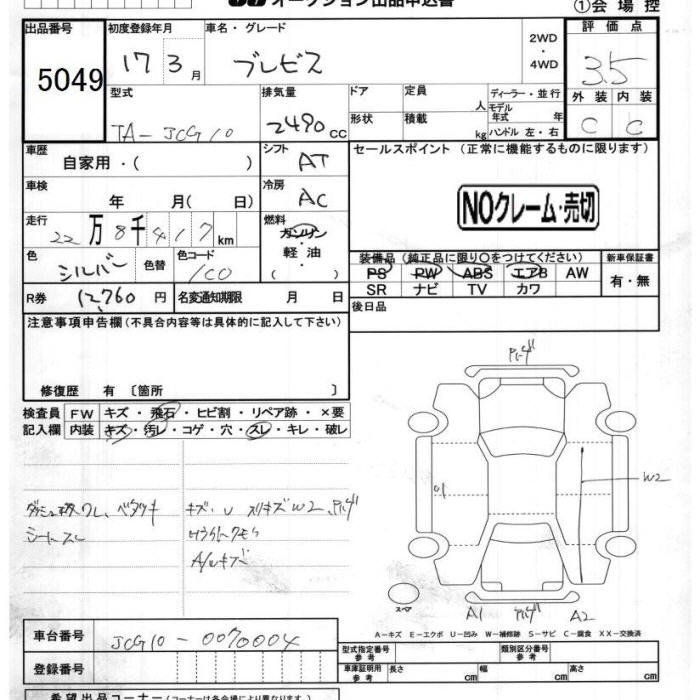 オークション出品申込書
①会場控
出品番号 初度登録年月 車名・グレード 2WD・4WD 評価点
5049 17 3月 ブレビス 3.5
型式 排気量 ドア 定員 人 ディーラー・並行 外装 内装
TA-JCG10 2490cc 形状 積載 kg モデル年式 年 ハンドル 左・右 C C
車歴 シフト セールスポイント（正常に機能するものに限ります）
自家用・（ ） AT
車検 冷房 NOクレーム・売切
年 月（ 日） AC
走行 燃料
22万8千417km ガソリン・軽油・（ ）
色 シルバー 色替 色コード 1C0
装備品（純正品に限り○をつけてください） 新車保証書
PS PW ABS エアB AW 有・無
SR ナビ TV カワ
R券 12,760円 名変通知期限 月 日 後日品
注意事項申告欄（不具合内容等は具体的に記入して下さい）
修復歴 有 〔箇所 〕
検査員 FW キズ・飛石・ヒビ割・リペア跡・×要
記入欄 内装 キズ・汚レ・コゲ・穴・スレ・キレ・破レ
ベタツキ キズ・U スリキズW2、
シートスレ
A/wキズ
U1
W2
スペア
A1 A2
A－キズ E－エクボ U－凹み W－補修跡 S－サビ C－腐食 XX－交換済
車台番号 JCG10-0070004 型式指定番号 参考 類別区分番号 参考
登録番号 車庫証明用 参考 長さ cm 幅 cm 高さ cm
希望出品コーナー（コーナーは各会場により異なります）